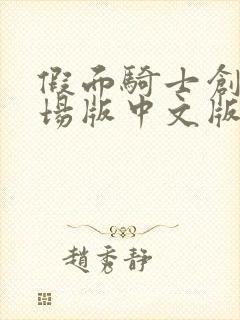 假面騎士創
場版中文版
趙秀靜